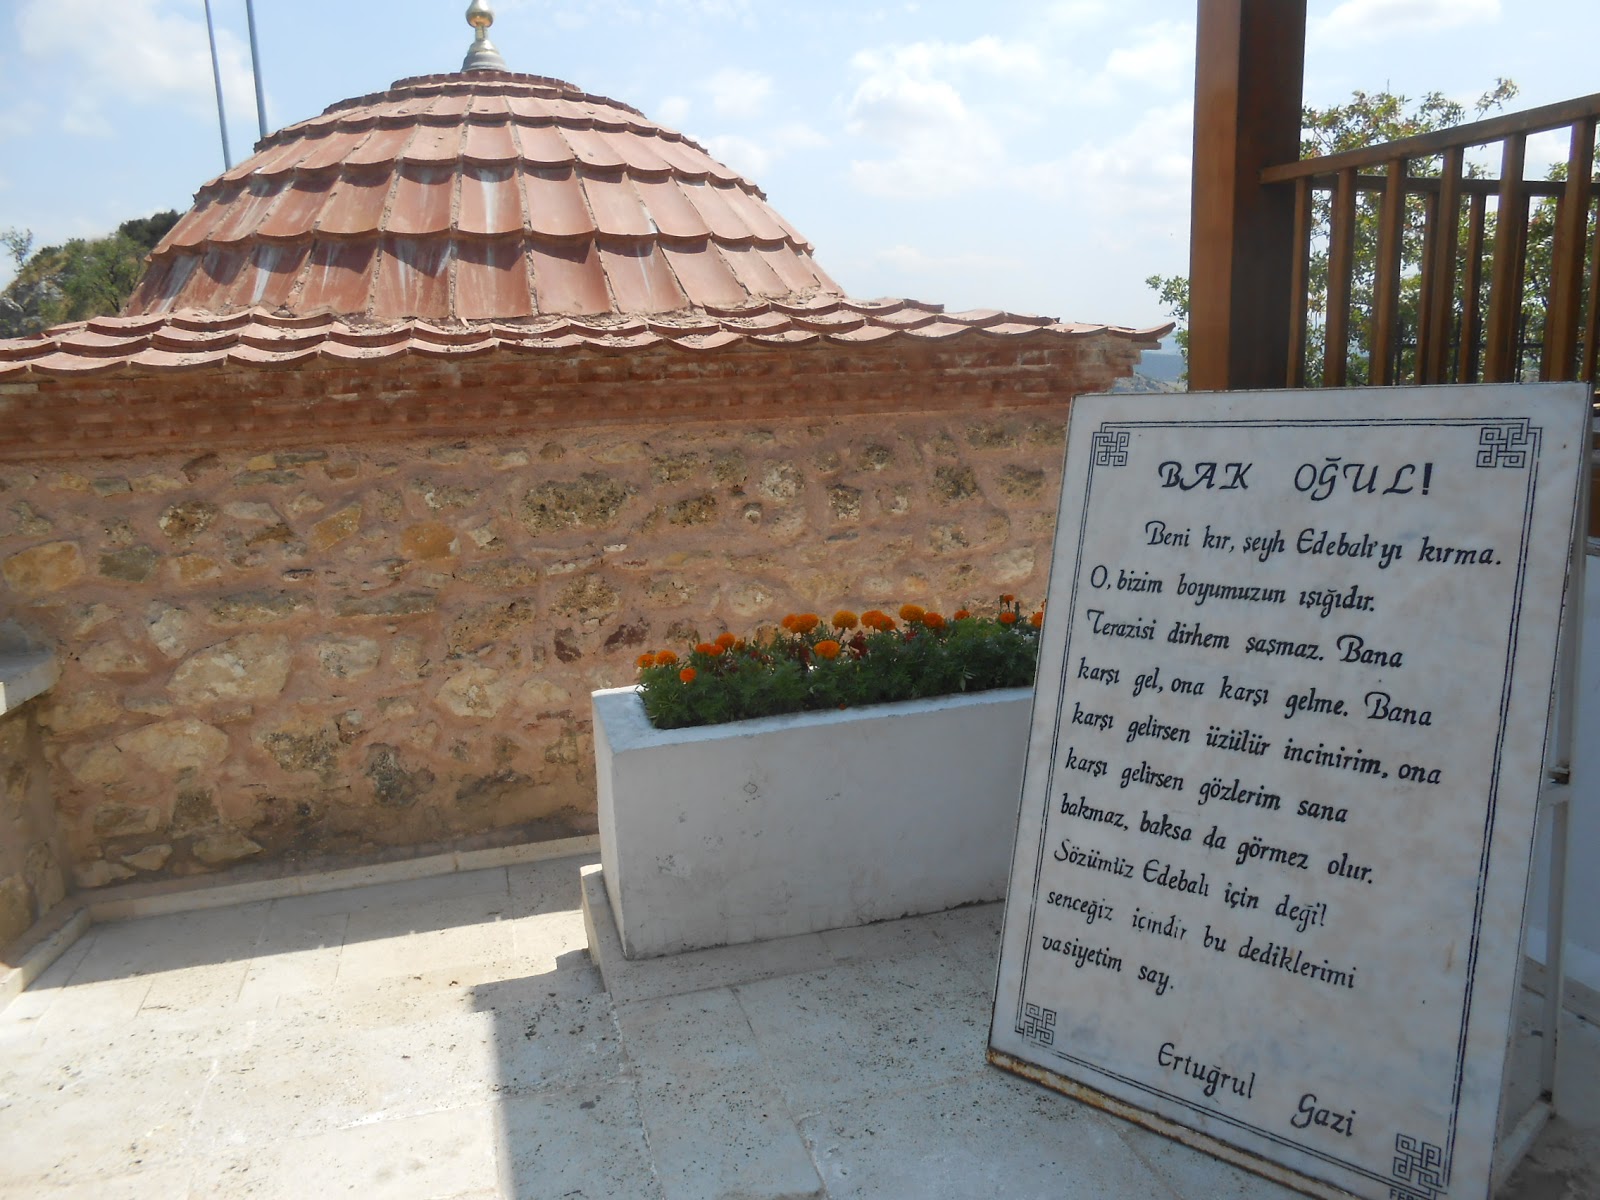 BAK OĞUL!
Beni kır, şeyh Edebalı'yı kırma.
O, bizim boyumuzun ışığıdır.
Terazisi dirhem şaşmaz. Bana
karşı gel, ona karşı gelme. Bana
karşı gelirsen üzülür incinirim, ona
karşı gelirsen gözlerim sana
bakmaz, baksa da görmez olur.
Sözümüz Edebalı için değil
senceğiz içindir bu dediklerimi
vasiyetim say.
Ertuğrul Gazi